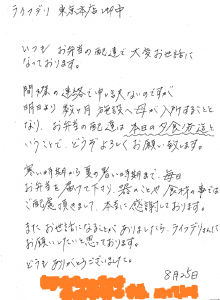 ライフデリ 東京本店 御中
いつも お弁当の配達で大変お世話に
なっております。
関様の連絡で申し訳ないのですが
明日より 数ヶ月 施設へ母が入所すること
となり、お弁当の配達は本日の夕食迄と
いうことで、どうぞよろしくお願い致します。
寒い時期から夏の暑い時期まで、毎日
お弁当を届けて下さり、器のことや食材の事など
ご配慮頂きまして、本当に感謝しております。
またお世話になることがありましたら、ライフデリさんに
お願いしたいと思っております。
どうも ありがとうございました。
8月25日